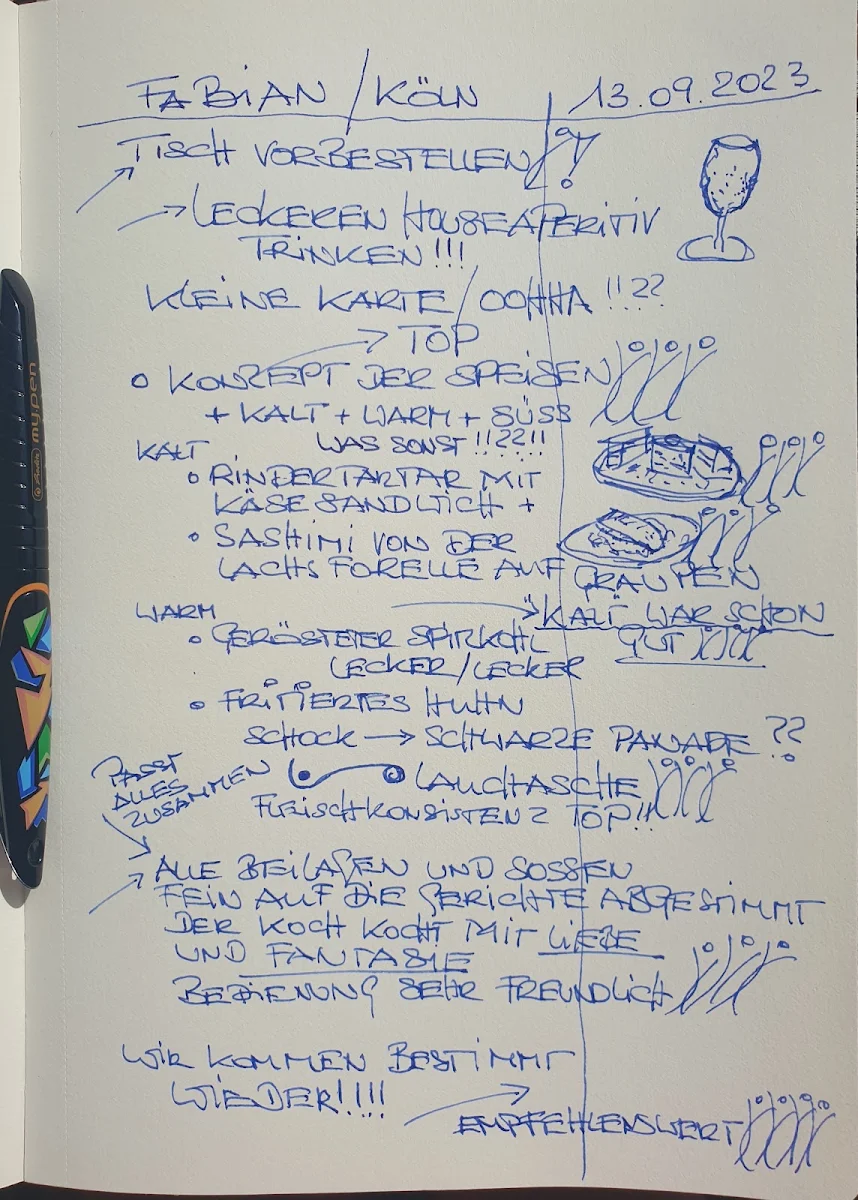 FABIAN / KÖLN 13.09.2023
TISCH VORBESTELLEN !!
→ LECKEREN HOUSEAPERITIV
TRINKEN !!!
KLEINE KARTE / OOHHA !!??
→ TOP
o KONZEPT DER SPEISEN !!!
+ KALT + WARM + SÜSS
WAS SONST !!??!!
KALT
o RINDERTARTAR MIT
KÄSESANDWICH + !!!
o SASHIMI VON DER !!!
LACHSFORELLE AUF GRAUPEN
→ "KALT" WAR SCHON
GUT !!!
WARM
o GERÖSTETER SPITZKOHL
LECKER/LECKER
o FRITIERTES HUHN
SCHOCK → SCHWARZE PANADE ??
LAUCHTASCHE !!!
FLEISCHKONSISTENZ TOP!!
PASST
ALLES
ZUSAMMEN
→ ALLE BEILAGEN UND SOSSEN
FEIN AUF DIE GERICHTE ABGESTIMMT
DER KOCH KOCHT MIT LIEBE
UND FANTASIE
BEDIENUNG SEHR FREUNDLICH !!!
WIR KOMMEN BESTIMMT
WIEDER!!!!
→ EMPFEHLENSWERT !!!!
my.pen